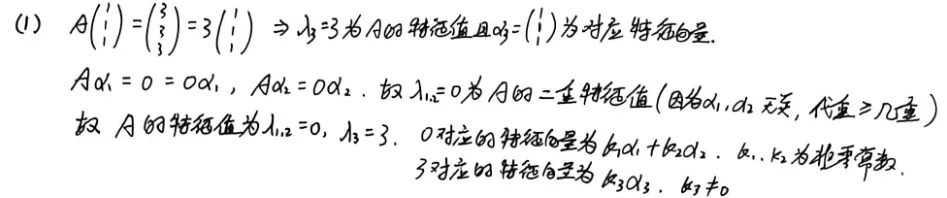 (1) A(1 1 1) = (3 3 3) = 3(1 1 1) ⇒ λ₃=3为A的特征值且α₃=(1 1 1)为对应特征向量.
Aα₁ = 0 = 0α₁, Aα₂ = 0α₂. 故λ₁,₂=0为A的二重特征值(因为α₁,α₂无关, 代重≥几重)
故 A的特征值为λ₁,₂=0, λ₃=3. 0对应的特征向量为k₁α₁+k₂α₂. k₁,k₂为非零常数.
3对应的特征向量为k₃α₃. k₃≠0